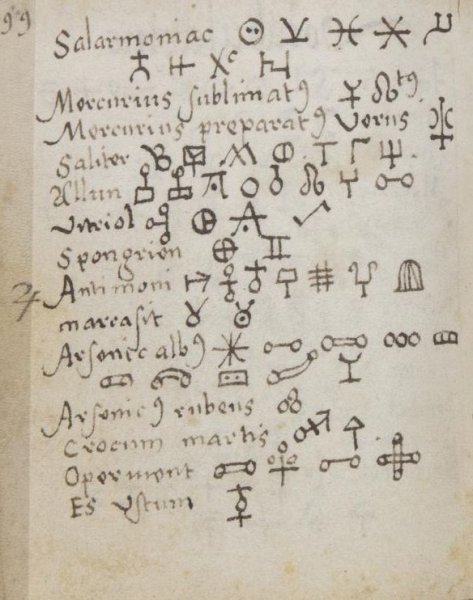 99
Salarmoniac
Xc
Mercurius sublimatꝰ
Mercurius preparatꝰ Verus
Saliter
Allun
Vitriol
Spongrien
Antimoni
marcasit
Arsenic albꝰ
Arsenicꝰ rubeus
Crocum martis
Operment
Es Ustum